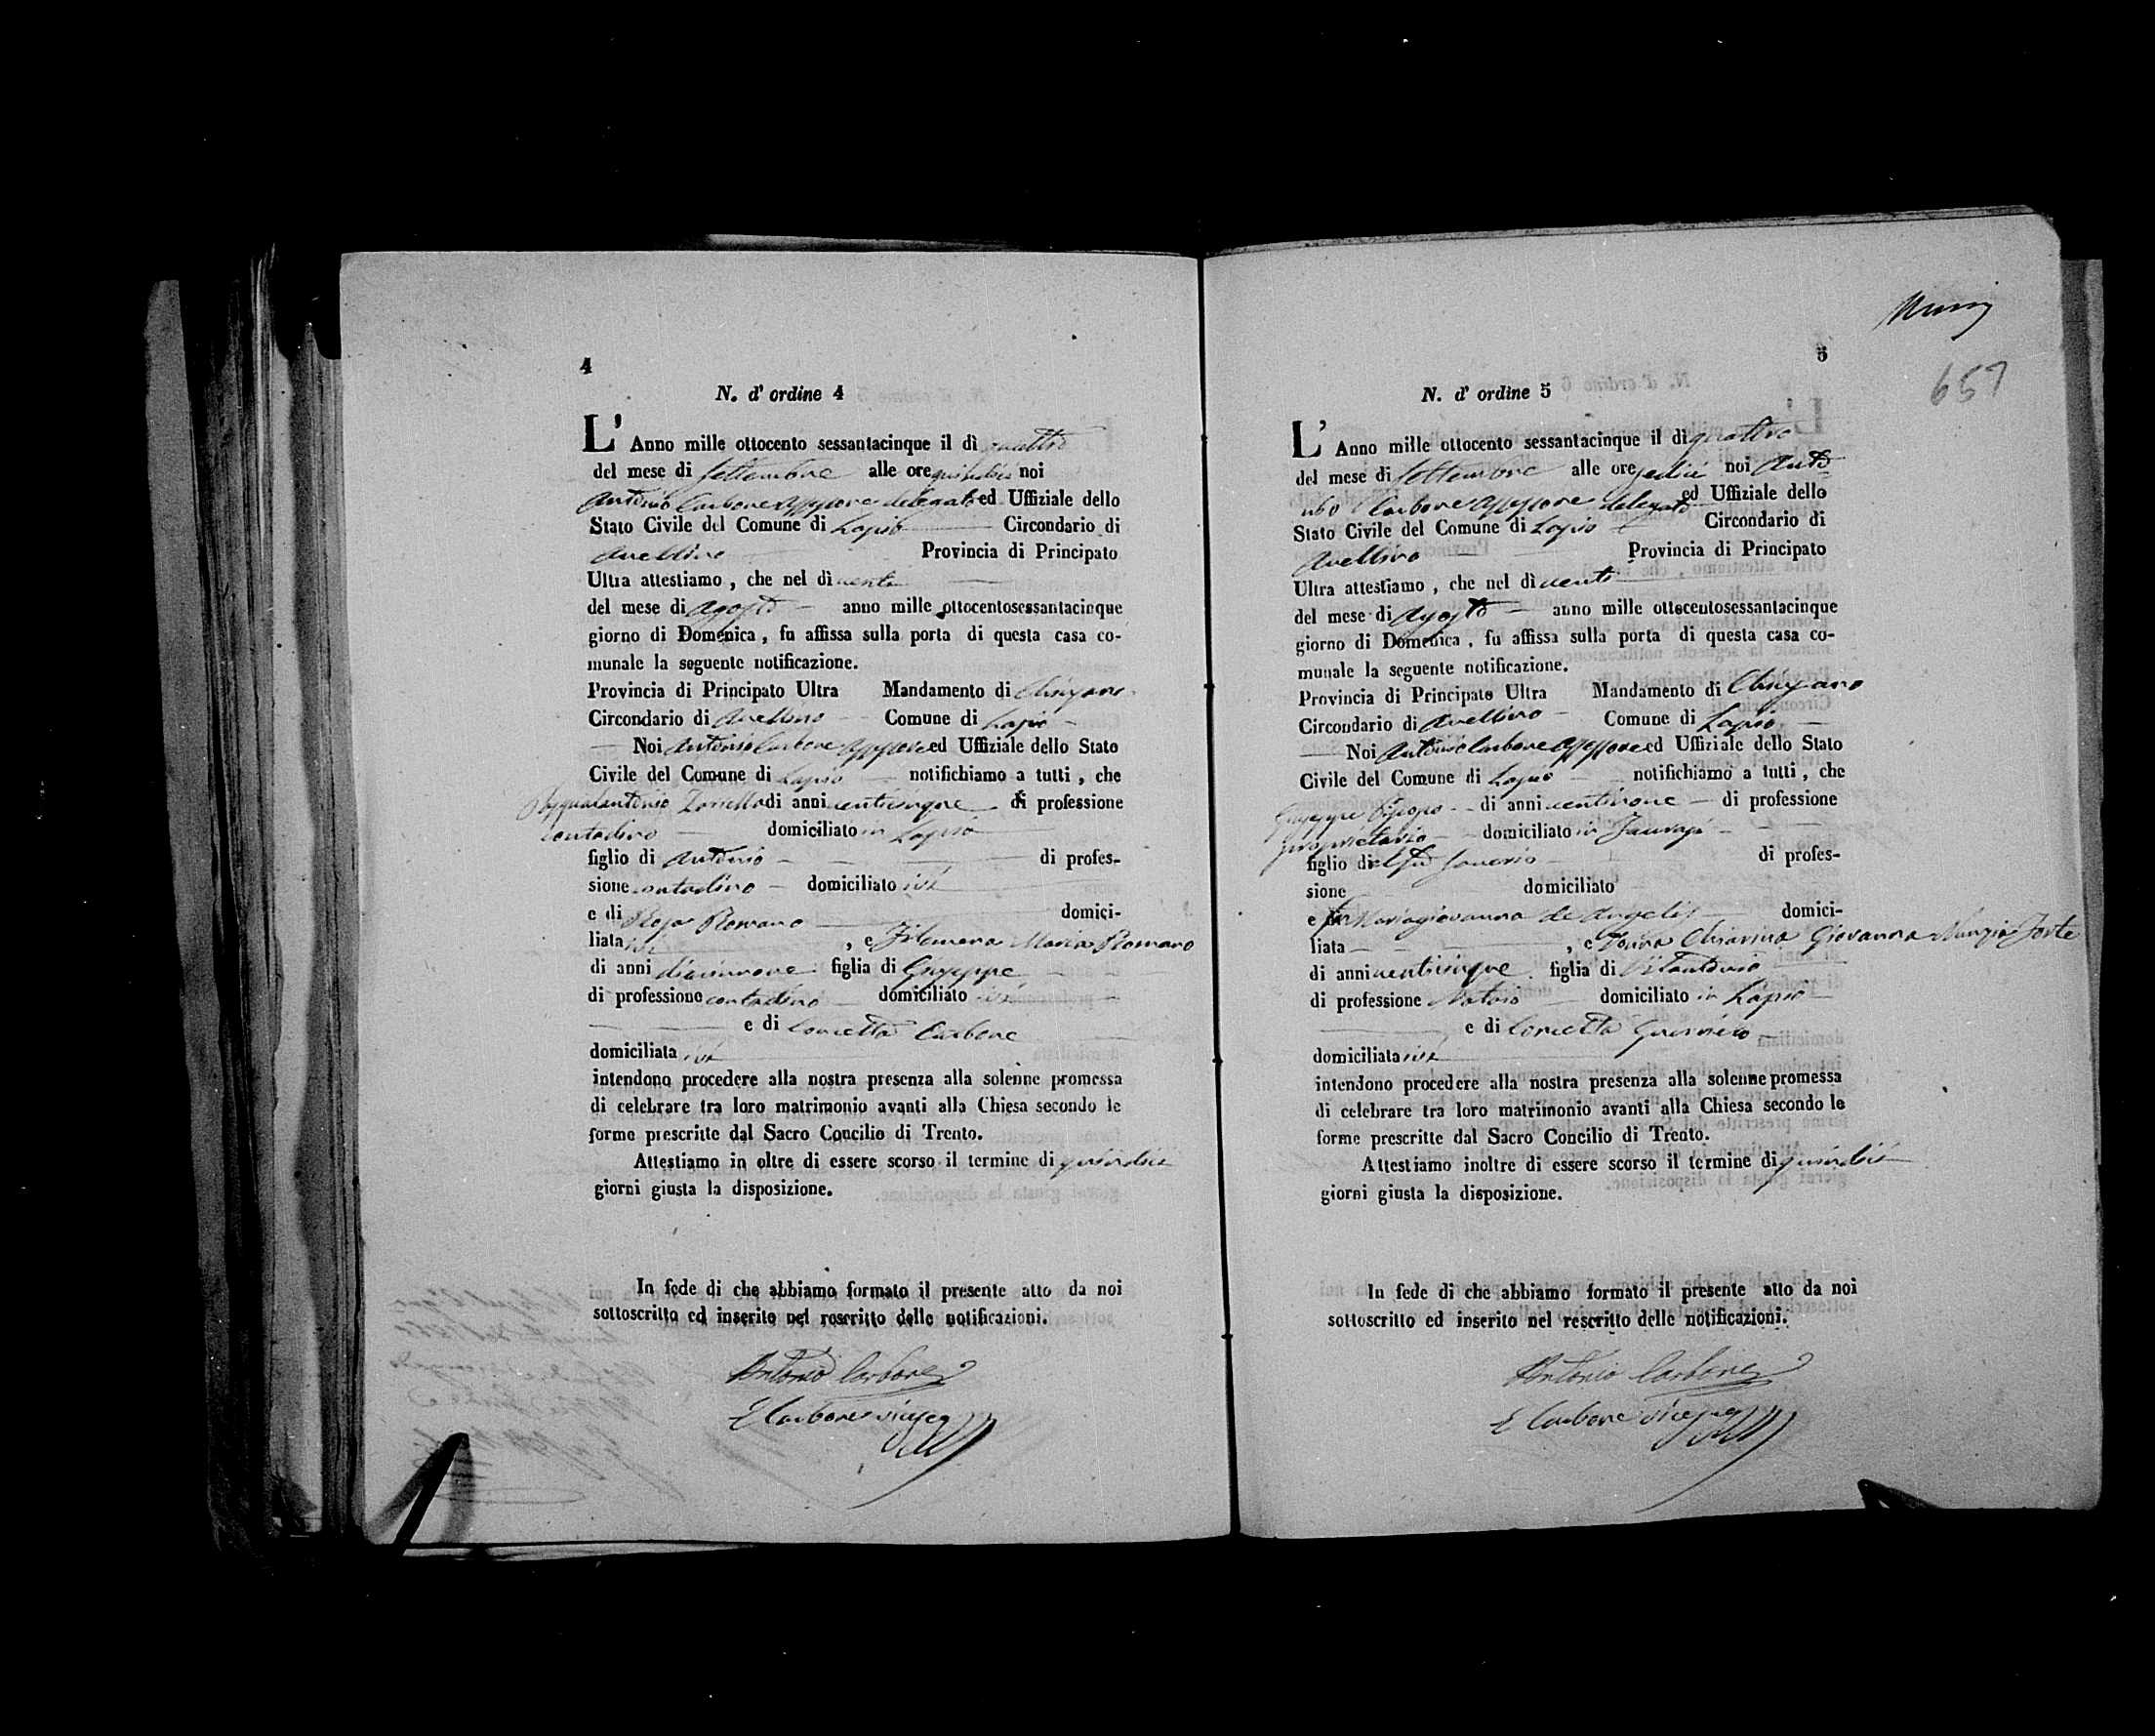 4
N. d' ordine 4
L' Anno mille ottocento sessantacinque il dì quattro
del mese di Settembre alle ore quindici noi
Antonio Carbone Assessore delegato ed Uffiziale dello
Stato Civile del Comune di Lapio Circondario di
Avellino Provincia di Principato
Ultra attestiamo , che nel dì venti
del mese di Agosto anno mille ottocentosessantacinque
giorno di Domenica , fu affissa sulla porta di questa casa co-
munale la seguente notificazione.
Provincia di Principato Ultra Mandamento di Chiusano
Circondario di Avellino Comune di Lapio
Noi Antonio Carbone Assessore ed Uffiziale dello Stato
Civile del Comune di Lapio notifichiamo a tutti , che
Pasqualantonio di anni venticinque di professione
contadino domiciliato in Lapio
figlio di Antonio di profes-
sione contadino domiciliato ivi
e di Rosa Romano domici-
liata ivi , e Filomena Maria Romano
di anni diecinnove figlia di Giuseppe
di professione contadino domiciliato ivi
e di Concetta Carbone
domiciliata ivi
intendono procedere alla nostra presenza alla solenne promessa
di celebrare tra loro matrimonio avanti alla Chiesa secondo le
forme prescritte dal Sacro Concilio di Trento.
Attestiamo in oltre di essere scorso il termine di quindici
giorni giusta la disposizione.
In fede di che abbiamo formato il presente atto da noi
sottoscritto ed inserito nel rescritto delle notificazioni.
Antonio Carbone
Carbone
5
657
N. d' ordine 5
L' Anno mille ottocento sessantacinque il dì quattro
del mese di Settembre alle ore sedici noi Anto
nio Carbone Assessore delegato ed Uffiziale dello
Stato Civile del Comune di Lapio Circondario di
Avellino Provincia di Principato
Ultra attestiamo , che nel dì venti
del mese di Agosto anno mille ottocentosessantacinque
giorno di Domenica , fu affissa sulla porta di questa casa co-
munale la seguente notificazione.
Provincia di Principato Ultra Mandamento di Chiusano
Circondario di Avellino Comune di Lapio
Noi Antonio Carbone Assessore ed Uffiziale dello Stato
Civile del Comune di Lapio notifichiamo a tutti , che
Giuseppe di anni ventinove di professione
proprietario domiciliato in Taurasi
figlio di Saverio di profes-
sione domiciliato
e fu Mariagiovanna de Angelis domici-
liata , e Donna Chiarina Giovanna Nunzia Forte
di anni venticinque figlia di Vitantonio
di professione Notaio domiciliato in Lapio
e di Concetta Guerriero
domiciliata ivi
intendono procedere alla nostra presenza alla solenne promessa
di celebrare tra loro matrimonio avanti alla Chiesa secondo le
forme prescritte dal Sacro Concilio di Trento.
Attestiamo inoltre di essere scorso il termine di quindici
giorni giusta la disposizione.
In fede di che abbiamo formato il presente atto da noi
sottoscritto ed inserito nel rescritto delle notificazioni.
Antonio Carbone
Carbone